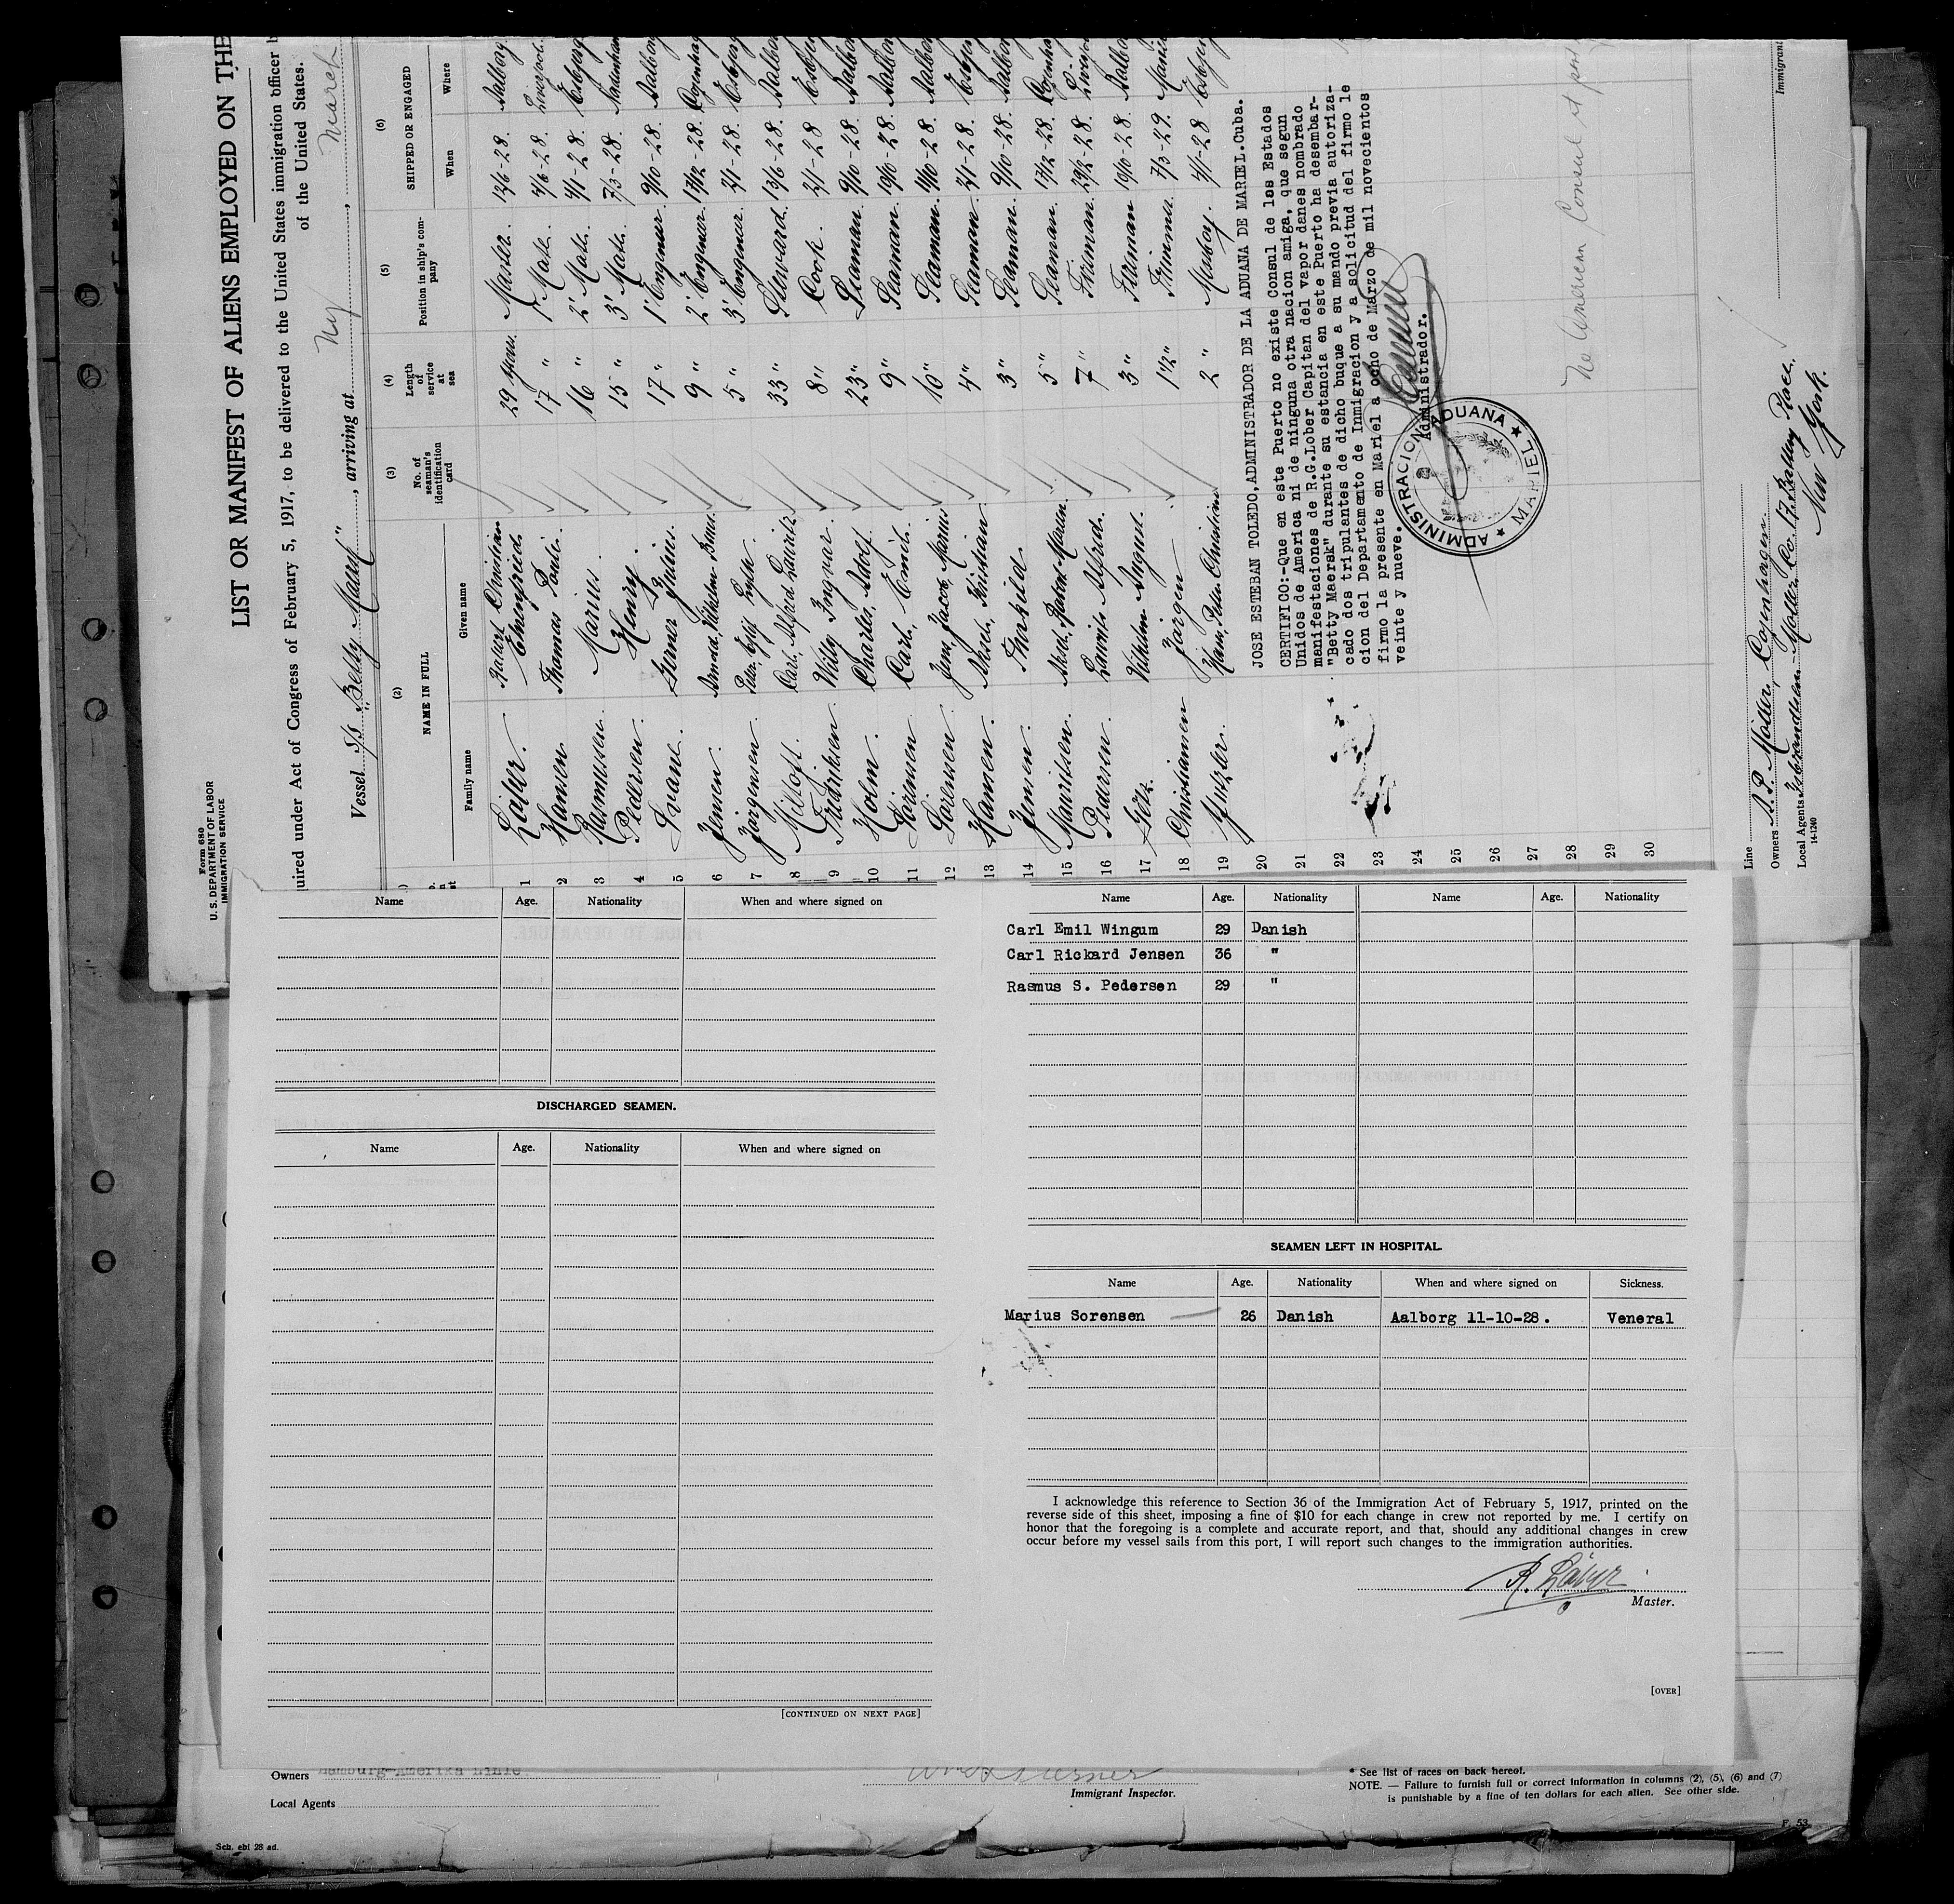 Form 680
U. S. DEPARTMENT OF LABOR
IMMIGRATION SERVICE
LIST OR MANIFEST OF ALIENS EMPLOYED ON THE
uired under Act of Congress of February 5, 1917, to be delivered to the United States immigration officer b
of the United States.
Vessel S/S "Betty Mærsk", arriving at NY, March
(2) (3) (4) (5) (6)
NAME IN FULL No. of seaman's identification card Length of service at sea Position in ship's company SHIPPED OR ENGAGED
Family name Given name When Where
1 Christian 29 years Master. 13/6-28. Aalborg
2 Hansen Thomas 17 " 1' Mate. Liverpool.
3 Rasmussen. Marius. 16 " 2' Mate. Esbjerg
4 Pedersen. Henry 15 " 3' Mate. 7/3-28.
5 Svane. 17 " 1' Engineer 9/10-28. Aalborg
6 Jensen. 9 " 2' Engineer. 17/12-28. Copenhag
7 Jörgensen 5 " 3' Engineer. Esbjerg
8 Carl, Alfred, Lauritz 33 " Steward. 13/6-28. Aalbor
9 Willy Ingvar. 8 " Cook. Esbjer
10 Holm. Charles, Adolf. 23 " Seaman. 9/10-28. Aalbor
11 Carl, Emil. 9 " Seaman. 19/10-28. Aalbor
12 Sörensen Jens, Jacob, Marius 10 " Seaman. Aalbor
13 Hansen. Aksel, Kristian 4 " Seaman. Esbjer
14 Jensen. Thorkild 3 " Seaman. 9/10-28. Aalbor
15 Mauritsen. 5 " Seaman. 17/12-28. Copenha
16 Pedersen. Laurits Alfred. 7 " Fireman
17 Vilhelm August. 3 " Fireman 19/10-28. Aalbor
18 Christiansen Jörgen 1½ " Trimmer 7/3-29. Mariel
19 Hans, Peder, Christian 2 " Messboy. Esbjer
20
21
22
23
24
25
26
27
28
29
30
JOSE ESTEBAN TOLEDO,ADMINISTRADOR DE LA ADUANA DE MARIEL.Cuba.
CERTIFICO:-Que en este Puerto no existe Consul de los Estados
Unidos de America ni de ninguna otra nacion amiga, que segun
manifestaciones de R.G.Lober Capitan del vapor danes nombrado
"Betty Maersk" durante su estancia en este Puerto ha desembar-
cado dos tripulantes de dicho buque a su mando previa autoriza-
cion del Departamento de Inmigracion y a solicitud del firmo le
firmo la presente en Mariel a ocho de Marzo de mil novecientos
veinte y nueve.
Administrador.
ADMINISTRACION ADUANA ★ MARIEL ★
No American Consul at port
Line
Owners A.P. Möller, Copenhagen.
Local Agents Isbrandtsen-Moller Co. 17 Battery Place,
New York.
Immigrant
14-1240
Name Age. Nationality When and where signed on
DISCHARGED SEAMEN.
Name Age. Nationality When and where signed on
[CONTINUED ON NEXT PAGE]
Name Age. Nationality Name Age. Nationality
Carl Emil Wingum 29 Danish
Carl Rickard Jensen 36 "
Rasmus S. Pedersen 29 "
SEAMEN LEFT IN HOSPITAL.
Name Age. Nationality When and where signed on Sickness.
Marius Sorensen 26 Danish Aalborg 11-10-28. Veneral
I acknowledge this reference to Section 36 of the Immigration Act of February 5, 1917, printed on the
reverse side of this sheet, imposing a fine of $10 for each change in crew not reported by me. I certify on
honor that the foregoing is a complete and accurate report, and that, should any additional changes in crew
occur before my vessel sails from this port, I will report such changes to the immigration authorities.
R. Löber
Master.
[OVER]
Owners Hamburg-Amerika Linie
Local Agents
Immigrant Inspector.
* See list of races on back hereof.
NOTE. — Failure to furnish full or correct information in columns (2), (5), (6) and (7)
is punishable by a fine of ten dollars for each alien. See other side.
Sch. ebi 28 ad.
F 53